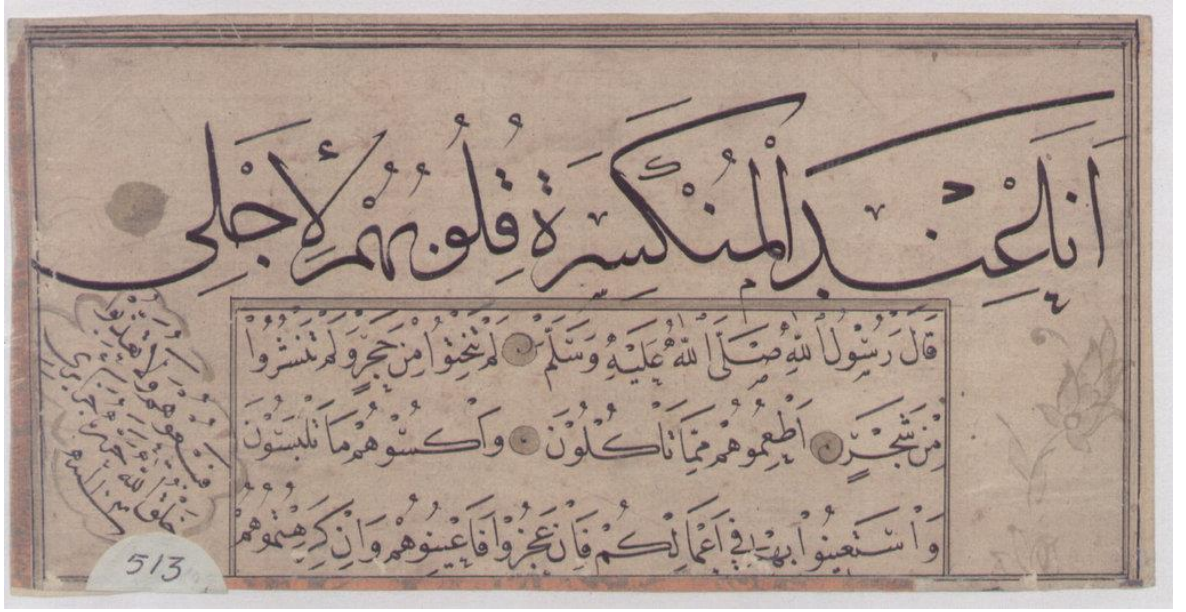 اَنَا عِنْدَ الْمُنْكَسِرَةِ قُلُوبُهُمْ لِأَجْلِي
قَالَ رَسُولُ اللّٰهِ صَلَّى اللّٰهُ عَلَيْهِ وَسَلَّمَ لَمْ تَنْحِتُوا مِنْ حَجَرٍ وَلَمْ تَنْشُرُوا
مِنْ شَجَرٍ اَطْعِمُوهُمْ مِمَّا تَاْكُلُونَ وَاكْسُوهُمْ مَا تَلْبَسُونَ
وَاسْتَعِينُوا بِهِمْ فِي اَعْمَالِكُمْ فَاِنْ عَجَزُوا فَاَعِينُوهُمْ وَاِنْ كَرِهْتُمُوهُمْ
فَبِيعُوهُمْ وَلَا تُعَذِّبُوا
خَلْقَ اللّٰهِ
513